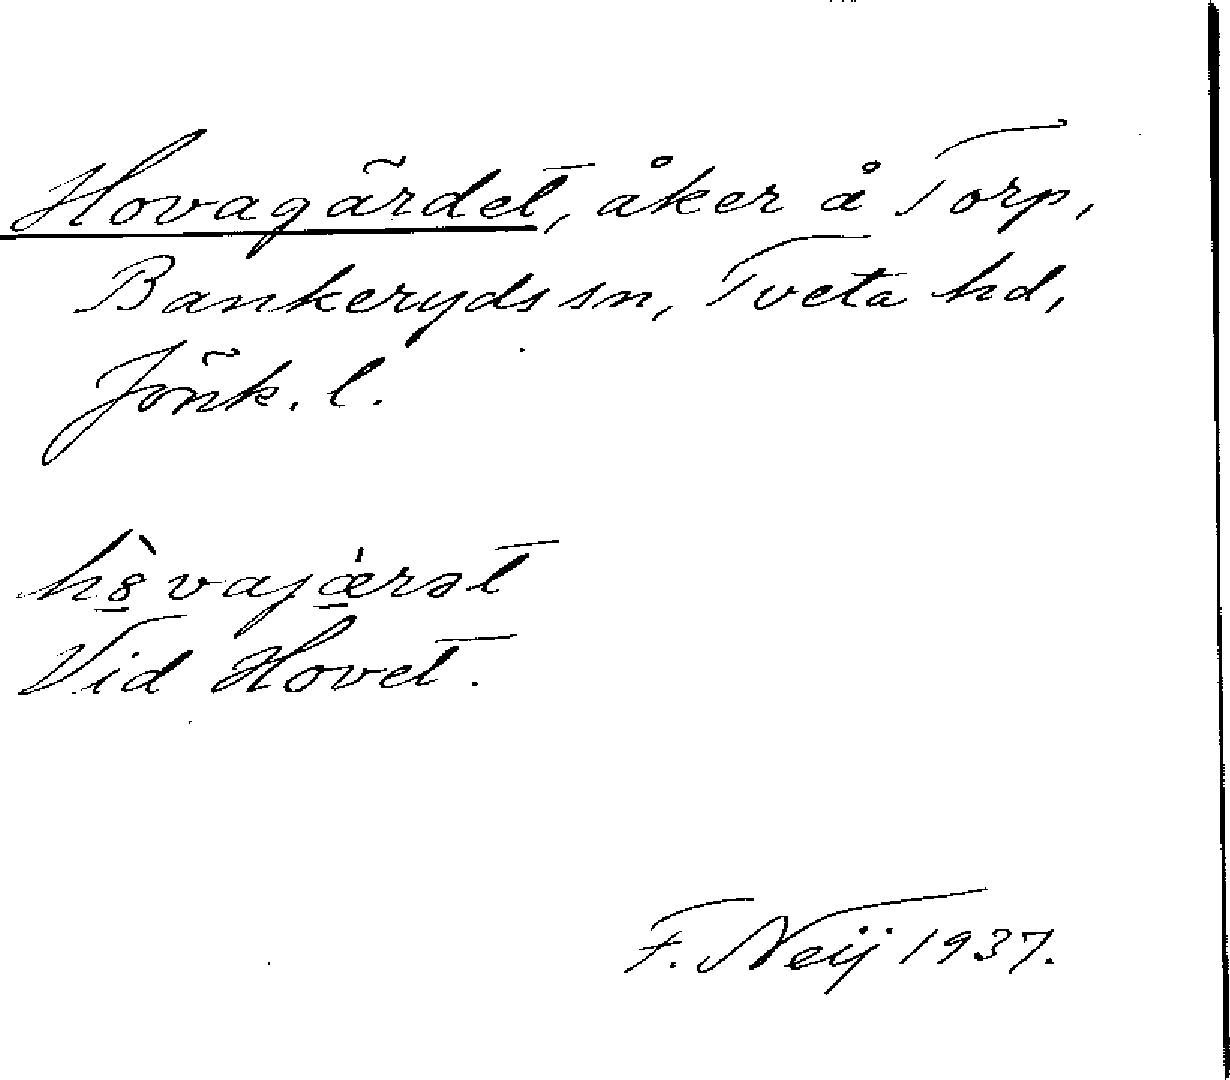 Hovagärdet, åker å Torp,
Bankeryds sn, Tveta hd,
Jönk. l.
hȣ̀vajæ̀rət
Vid Hovet.
F. Neij 1937.